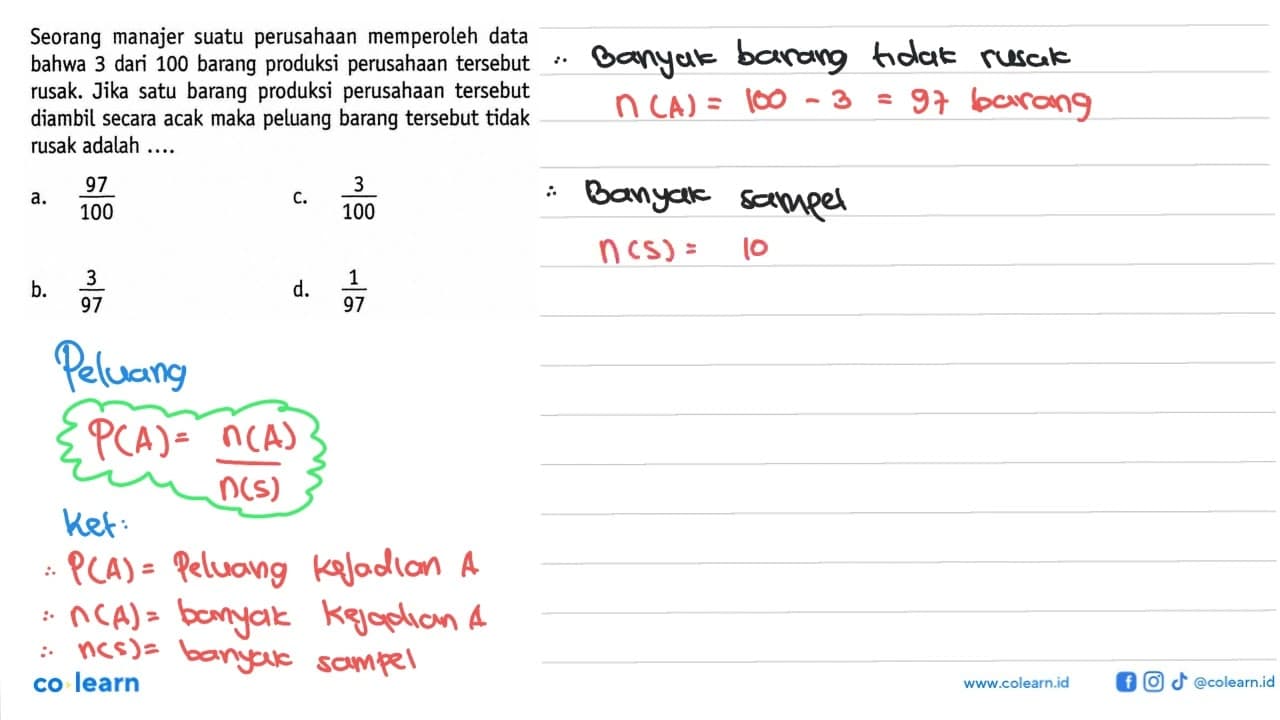 Seorang manajer suatu perusahaan memperoleh data
bahwa 3 dari 100 barang produksi perusahaan tersebut
rusak. Jika satu barang produksi perusahaan tersebut
diambil secara acak maka peluang barang tersebut tidak
rusak adalah ....
a. 97/100
c. 3/100
b. 3/97
d. 1/97
Peluang
P(A) = n(A)/n(S)
Ket:
∴ P(A) = Peluang Kejadian A
∴ n(A) = banyak Kejadian A
∴ n(S) = banyak sampel
∴ Banyak barang tidak rusak
n(A) = 100 - 3 = 97 barang
∴ Banyak sampel
n(S) = 10
co learn
www.colearn.id
@colearn.id